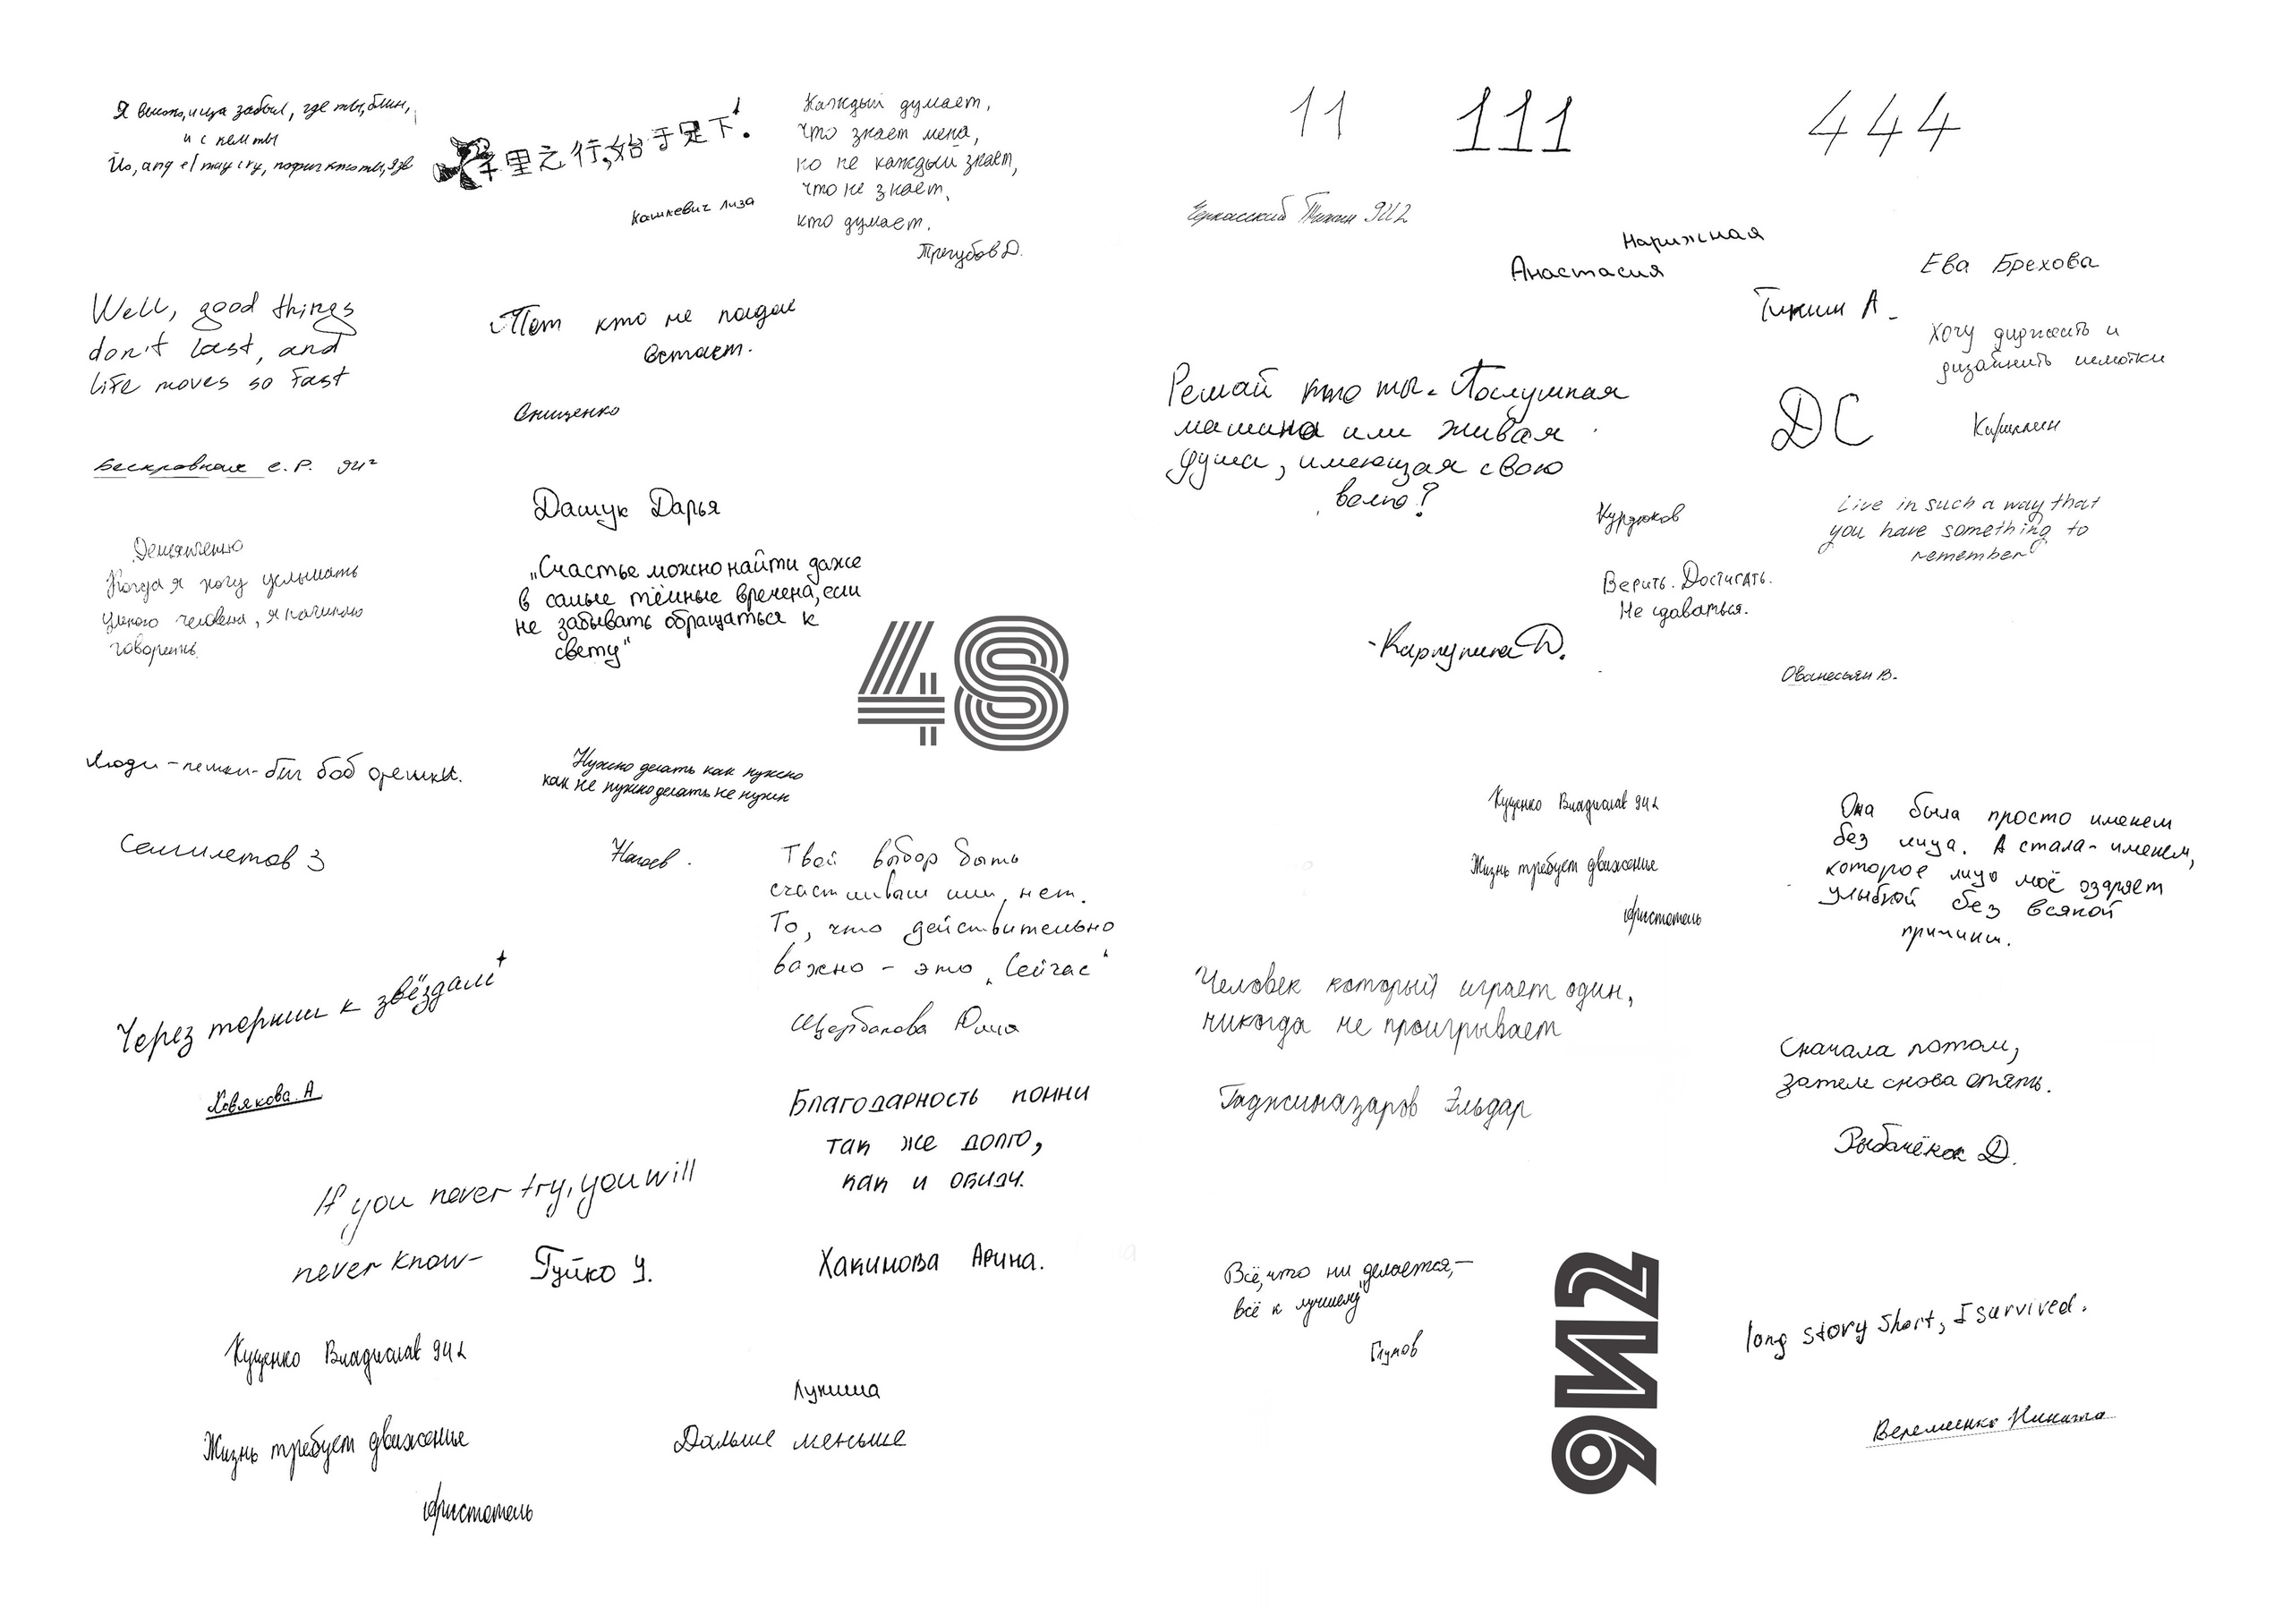 Я
забыл, где ты, блин,
и с кем ты
Yo, angel may cry, пофиг кто ты, где
千里之行,始于足下!
Кашкевич Лиза
Каждый думает,
что знает меня,
но не каждый знает,
что не знает,
кто думает.
Трегубов Д.
Well, good things
don't last, and
life moves so fast
Бескровная е.Р. 9И²
Тот кто не падал
встаёт.
Онищенко
Дащук Дарья
„Счастье можно найти даже
в самые тёмные времена, если
не забывать обращаться к
свету"
Когда я хочу услышать
умного человека, я начинаю
говорить.
48
Люди-пешки-бы боб орешки.
Нужно делать как нужно
как не нужно делать не нужн
Семилетов З
Нагаев.
Твой выбор быть
счастливым или нет.
То, что действительно
важно - это „Сейчас"
Щербакова Юлия
Через тернии к звёздам
Ховякова. А
Благодарность помни
так же долго,
как и обиду.
Хакимова Арина.
If you never try, you will
never know-
Гуйко У.
Куценко Владислав 9И2
Жизнь требует движение
Аристотель
Лукина
Дальше меньше
11
111
444
Черкасский Тихон 9И2
Нарижная
Анастасия
Ева Брехова
Тикин А.
Хочу диржить и
дизайнить шмотки
Решай кто ты. Послушная
машина или живая
душа, имеющая свою
волю?
ДС
Кириллин
Курдюков
Live in such a way that
you have something to
remember
Верить. Достигать.
Не сдаваться.
-Карпунина Д.
Ованесьян В.
Куценко Владислав 9И2
Жизнь требует движение
Аристотель
Она была просто именем
без лица. А стала-именем,
которое лицо моё озаряет
улыбкой без всякой
причины.
Человек который играет один,
никогда не проигрывает
Гаджиназаров Эльдар
Сначала потом,
затем снова опять.
Рыбачёнок Д.
Всё, что ни делается,—
всё к лучшему
Глумов
9И2
long story short, I survived.
Веремеенко Никита